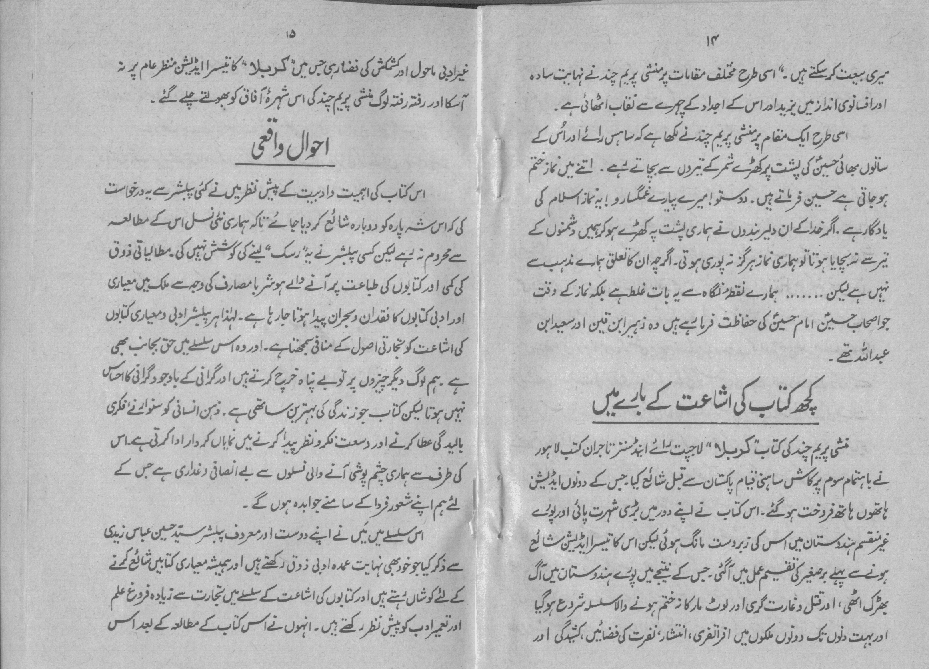 ۱۴
میری بیعت کرسکتے ہیں۔" اسی طرح مختلف مقامات پر منشی پریم چند نے نہایت سادہ
اور افسانوی انداز میں یزید اور اس کے اجداد کے چہرے سے نقاب اٹھائی ہے۔
اسی طرح ایک مقام پر منشی پریم چند نے لکھا ہے کہ ساہس رائے اور اُس کے
ساتوں بھائی حسینؑ کی پشت پر کھڑے شمر کے تیروں سے بچاتے رہے۔ اتنے میں نماز ختم
ہو جاتی ہے حسین فرماتے ہیں۔ دوستو! میرے پیارے غمگسارو! یہ نماز اسلام کی
یادگار ہے۔ اگر خدا کے ان دلیر بندوں نے ہماری پشت پہ کھڑے ہوکر ہمیں دشمنوں کے
تیر سے نہ بچایا ہوتا تو ہماری نماز ہرگز نہ پوری ہوتی۔ اگرچہ ان کا تعلق ہمارے مذہب سے
نہیں ہے لیکن ....... ہمارے نقطۂ نگاہ سے یہ بات غلط ہے بلکہ نماز کے وقت
جو اصحاب حسینؑ امام حسینؑ کی حفاظت فرما رہے ہیں وہ زہیر ابن قین اور سعید ابن
عبداللہ تھے۔
کچھ کتاب کی اشاعت کے بارے میں
منشی پریم چند کی کتاب "کربلا" لاجپت رائے اینڈ سنز تاجران کتب لاہور
نے باہتمام سوم پرکاش ساہنی قیام پاکستان سے قبل شائع کیا، جس کے دونوں ایڈیشن
ہاتھوں ہاتھ فروخت ہوگئے۔ اس کتاب نے اپنے دور میں بڑی شہرت پائی اور پورے
غیر منقسم ہندوستان میں اس کی زبردست مانگ ہوئی لیکن اس کا تیسرا ایڈیشن شائع
ہونے سے پہلے برصغیر کی تقسیم عمل میں آگئی۔ جس کے نتیجے میں پورے ہندوستان میں آگ
بھڑک اٹھی، اور قتل و غارت گری اور لوٹ مار کا نہ ختم ہونے والا سلسلہ شروع ہوگیا
اور بہت دنوں تک دونوں ملکوں میں افراتفری، انتشار، نفرت کی فضائیں، کشیدگی اور
۱۵
غیر ادبی ماحول اور کشمکش کی فضا رہی جس میں "کربلا" کا تیسرا ایڈیشن منظر عام پر نہ
آسکا اور رفتہ رفتہ لوگ منشی پریم چند کی اس شہرۂ آفاق کو بھولتے چلے گئے۔
احوال واقعی
اس کتاب کی اہمیت و ادبیت کے پیش نظر میں نے کئی پبلشر سے یہ درخواست
کی کہ اس شہ پارہ کو دوبارہ شائع کر دیا جائے تاکہ ہماری نئی نسل اس کے مطالعہ
سے محروم نہ رہے لیکن کسی پبلشر نے یہ "رسک" لینے کی کوشش نہیں کی۔ مطالیاتی ذوق
کی کمی اور کتابوں کی طباعت پر آنے والے ہوشربا مصارف کی وجہ سے ملک میں معیاری
اور ادبی کتابوں کا فقدان و بحران پیدا ہوتا جا رہا ہے۔ لہٰذا ہر پبلشر ادبی و معیاری کتابوں
کی اشاعت کو تجارتی اصول کے منافی سمجھتا ہے۔ اور وہ اس سلسلے میں حق بجانب بھی
ہے۔ ہم لوگ دیگر چیزوں پر تو بے پناہ خرچ کرتے ہیں اور گرانی کے باوجود گرانی کا احساس
نہیں ہوتا لیکن کتاب جو زندگی کی بہترین ساتھی ہے۔ ذہن انسانی کو سنوارنے فکری
بالیدگی عطا کرنے اور وسعت فکر و نظر پیدا کرنے میں نمایاں کردار ادا کرتی ہے۔ اس
کی طرف سے ہماری چشم پوشی آنے والی نسلوں سے بے انصافی و غداری ہے جس کے
لئے ہم اپنے شعور فردا کے سامنے جوابدہ ہوں گے۔
اس سلسلے میں میں نے اپنے دوست اور معروف پبلشر سید حسین عباس زیدی
سے ذکر کیا جو خود بھی نہایت عمدہ ادبی ذوق رکھتے ہیں اور ہمیشہ معیاری کتابیں شائع کرنے
کے لئے کوشاں رہتے ہیں اور کتابوں کی اشاعت کے سلسلے میں تجارت سے زیادہ فروغ علم
اور تعمیر ادب کو پیش نظر رکھتے ہیں۔ انہوں نے اس کتاب کے مطالعہ کے بعد اس